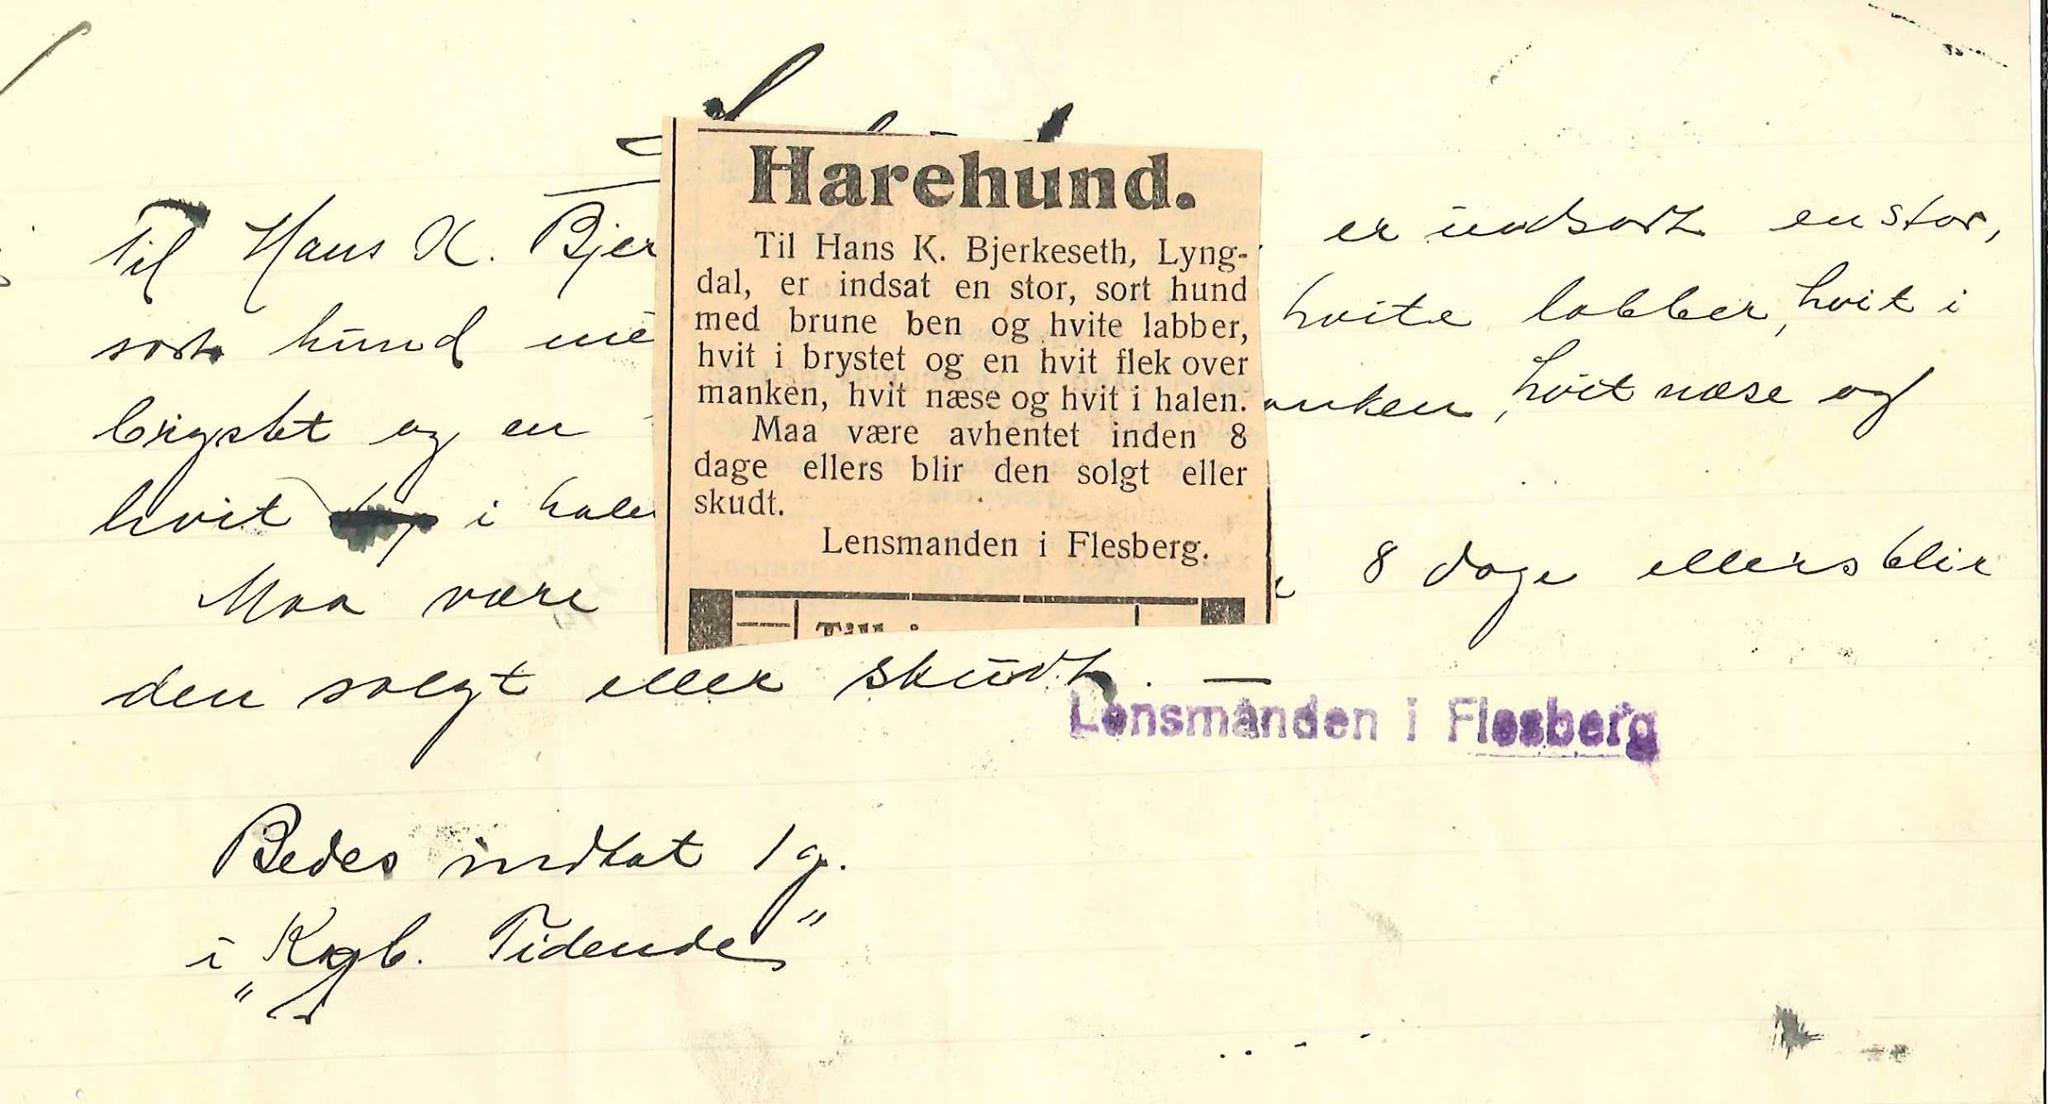 Harehund.
Til Hans K. Bjerkeseth, Lyng-
dal, er indsat en stor, sort hund
med brune ben og hvite labber,
hvit i brystet og en hvit flek over
manken, hvit næse og hvit i halen.
Maa være avhentet inden 8
dage ellers blir den solgt eller
skudt.
Lensmanden i Flesberg.
Til Hans K. Bjer er indsat en stor,
sort hund me hvite labber, hvit i
brystet og en anken, hvit næse og
hvit i halen
Maa være 8 dage ellers blir
den solgt eller skudt. —
Lensmanden i Flesberg
Bedes indtat 1 g.
i „Kgb. Tidende"